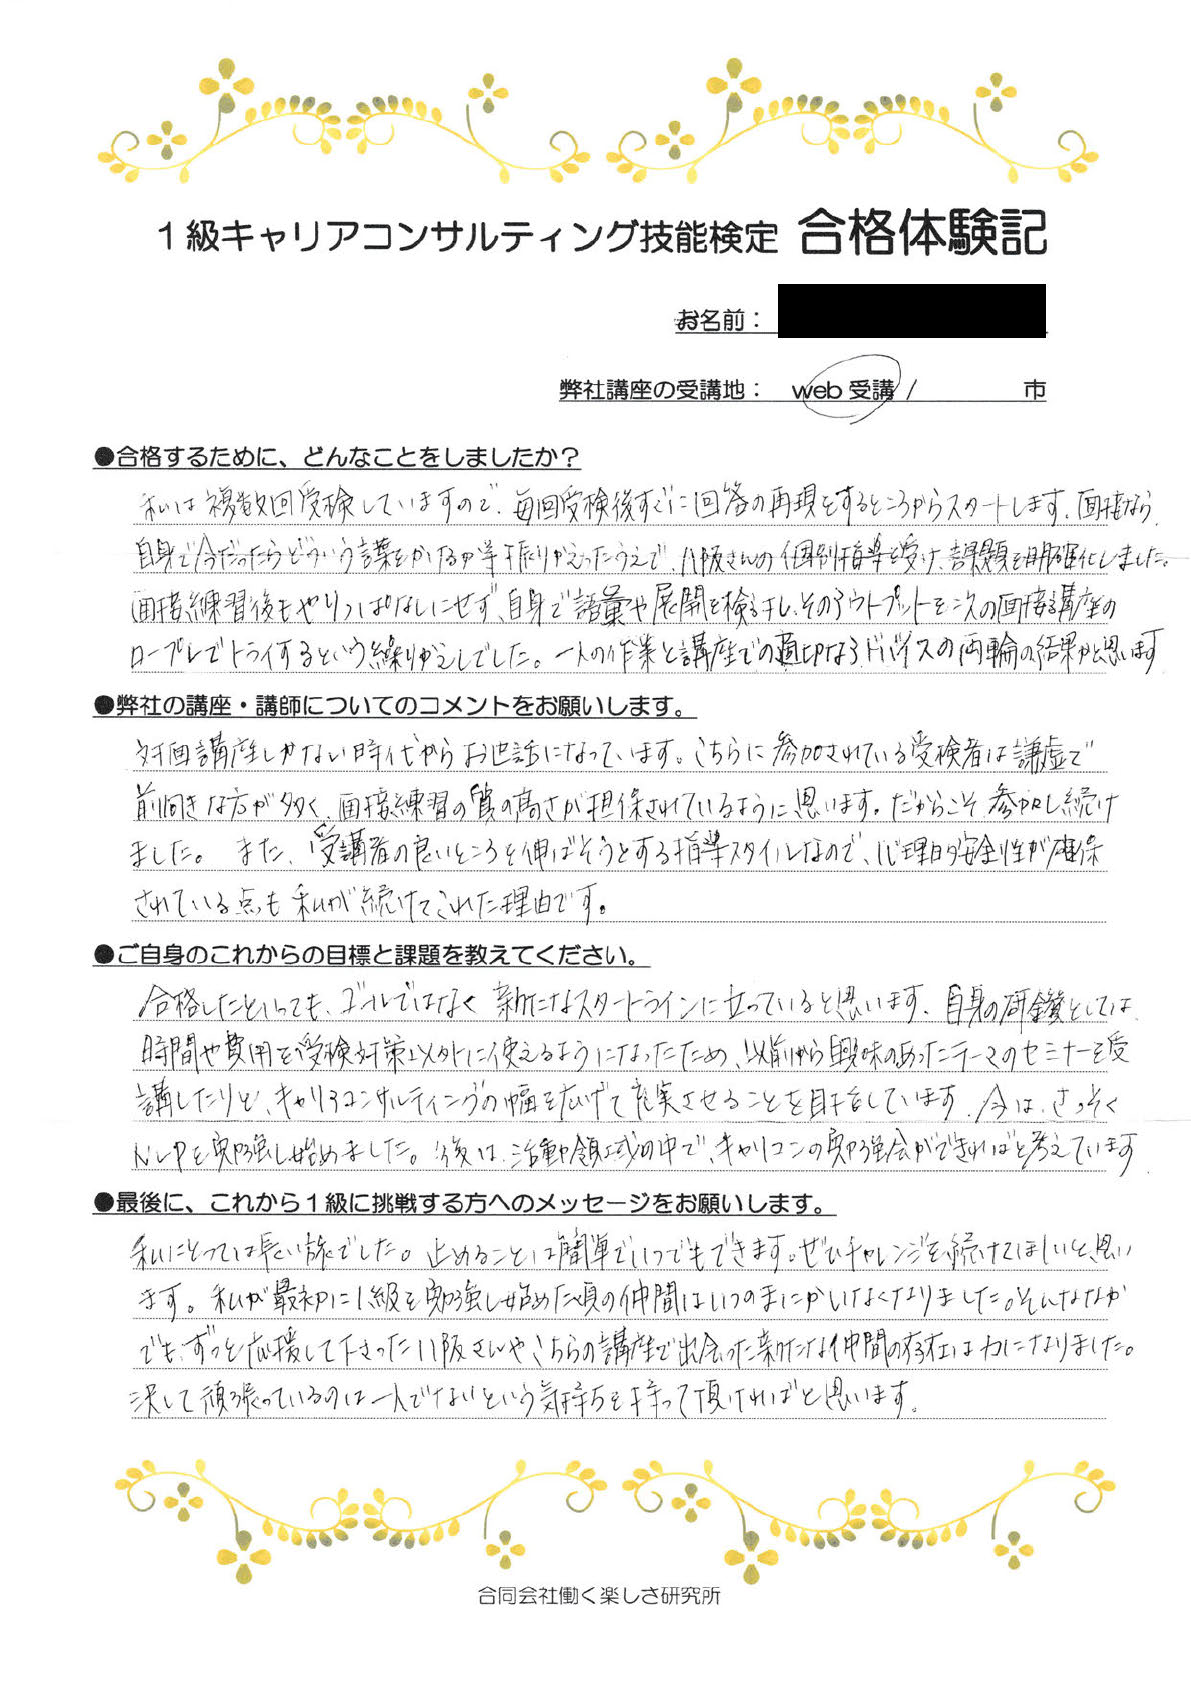 1級キャリアコンサルティング技能検定 合格体験記
お名前：
弊社講座の受講地： web 受講 / 市
●合格するために、どんなことをしましたか？
私は複数回受検していますので、毎回受検後すぐに回答の再現をするところからスタートします。面接なら、
自身で今だったらどういう言葉をかけるか等振りかえったうえで、八阪さんの個別指導を受け、課題を明確化しました。
面接練習後もやりっぱなしにせず、自身で語彙や展開を検討し、そのアウトプットを次の面接講座の
ロープレでトライするという繰りかえしでした。一人の作業と講座での適切なアドバイスの両輪の結果かと思います
●弊社の講座・講師についてのコメントをお願いします。
対面講座しかない時代からお世話になっています。こちらに参加されている受検者は謙虚で
前向きな方が多く、面接練習の質の高さが担保されているように思います。だからこそ参加し続け
ました。 また、受講者の良いところを伸ばそうとする指導スタイルなので、心理的安全性が確保
されている点も私が続けてこれた理由です。
●ご自身のこれからの目標と課題を教えてください。
合格したといっても、ゴールではなく 新たなスタートラインに立っていると思います。自身の研鑽としては、
時間や費用を受検対策以外に使えるようになったため、以前から興味のあったテーマのセミナーを受
講したりと、キャリアコンサルティングの幅を広げて充実させることを目指しています。今は、さっそく
NLPを勉強し始めました。今後は、活動領域の中で、キャリコンの勉強会ができればと考えています
●最後に、これから1級に挑戦する方へのメッセージをお願いします。
私にとっては長い旅でした。止めることは簡単でいつでもできます。ぜひチャレンジを続けてほしいと思い
ます。私が最初に1級を勉強し始めた頃の仲間はいつのまにかいなくなりました。そんななか
でも、ずっと応援して下さった八阪さんやこちらの講座で出会った新たな仲間の存在は力になりました。
決して頑張っているのは一人でないという気持ちを持って頂ければと思います。
合同会社働く楽しさ研究所